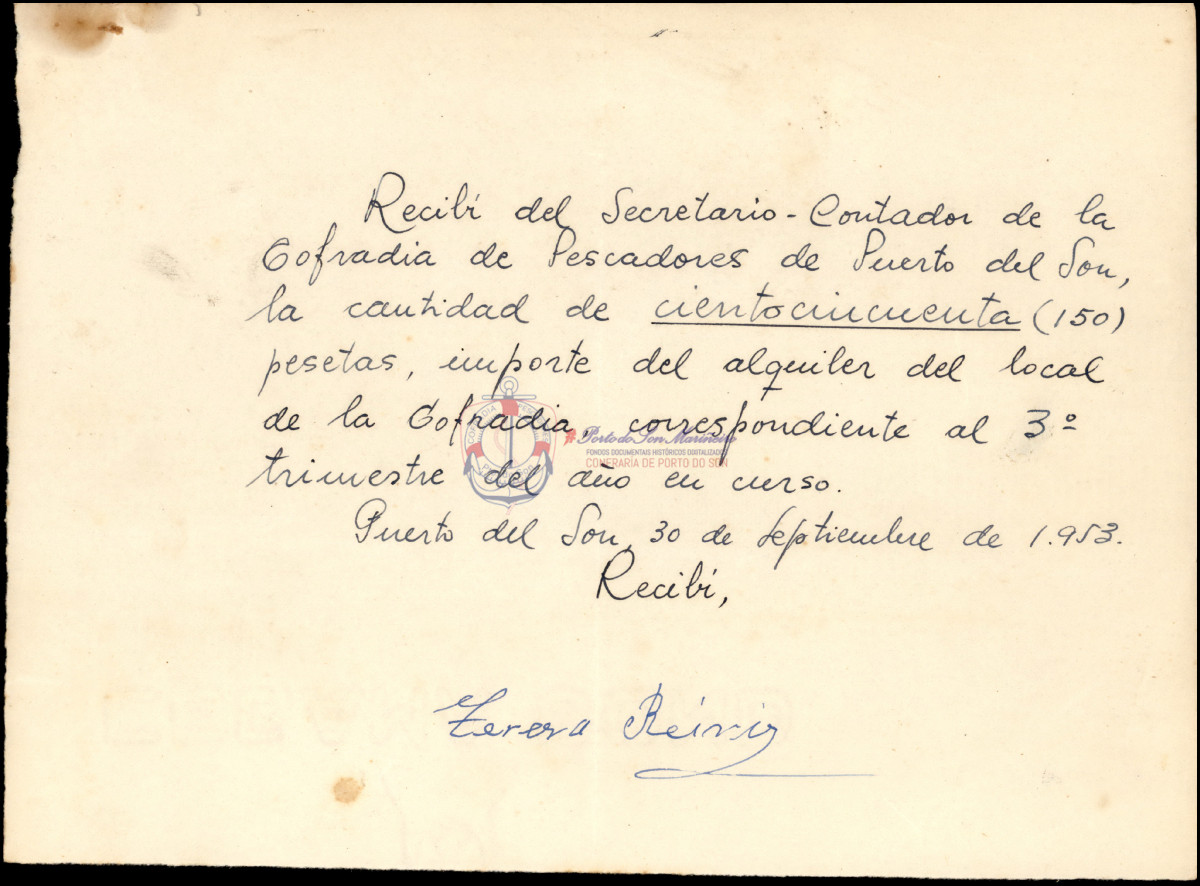 Recibí del Secretario-Contador de la
Cofradia de Pescadores de Puerto del Son,
la cantidad de cientocincuenta (150)
pesetas, importe del alquiler del local
de la Cofradia, correspondiente al 3º
#PortodoSon Mariñeiro
FONDOS DOCUMENTAIS HISTÓRICOS DIXITALIZADOS
CONFRARÍA DE PORTO DO SON
trimestre del año en curso.
Puerto del Son, 30 de Septiembre de 1.953.
Recibí,
Teresa